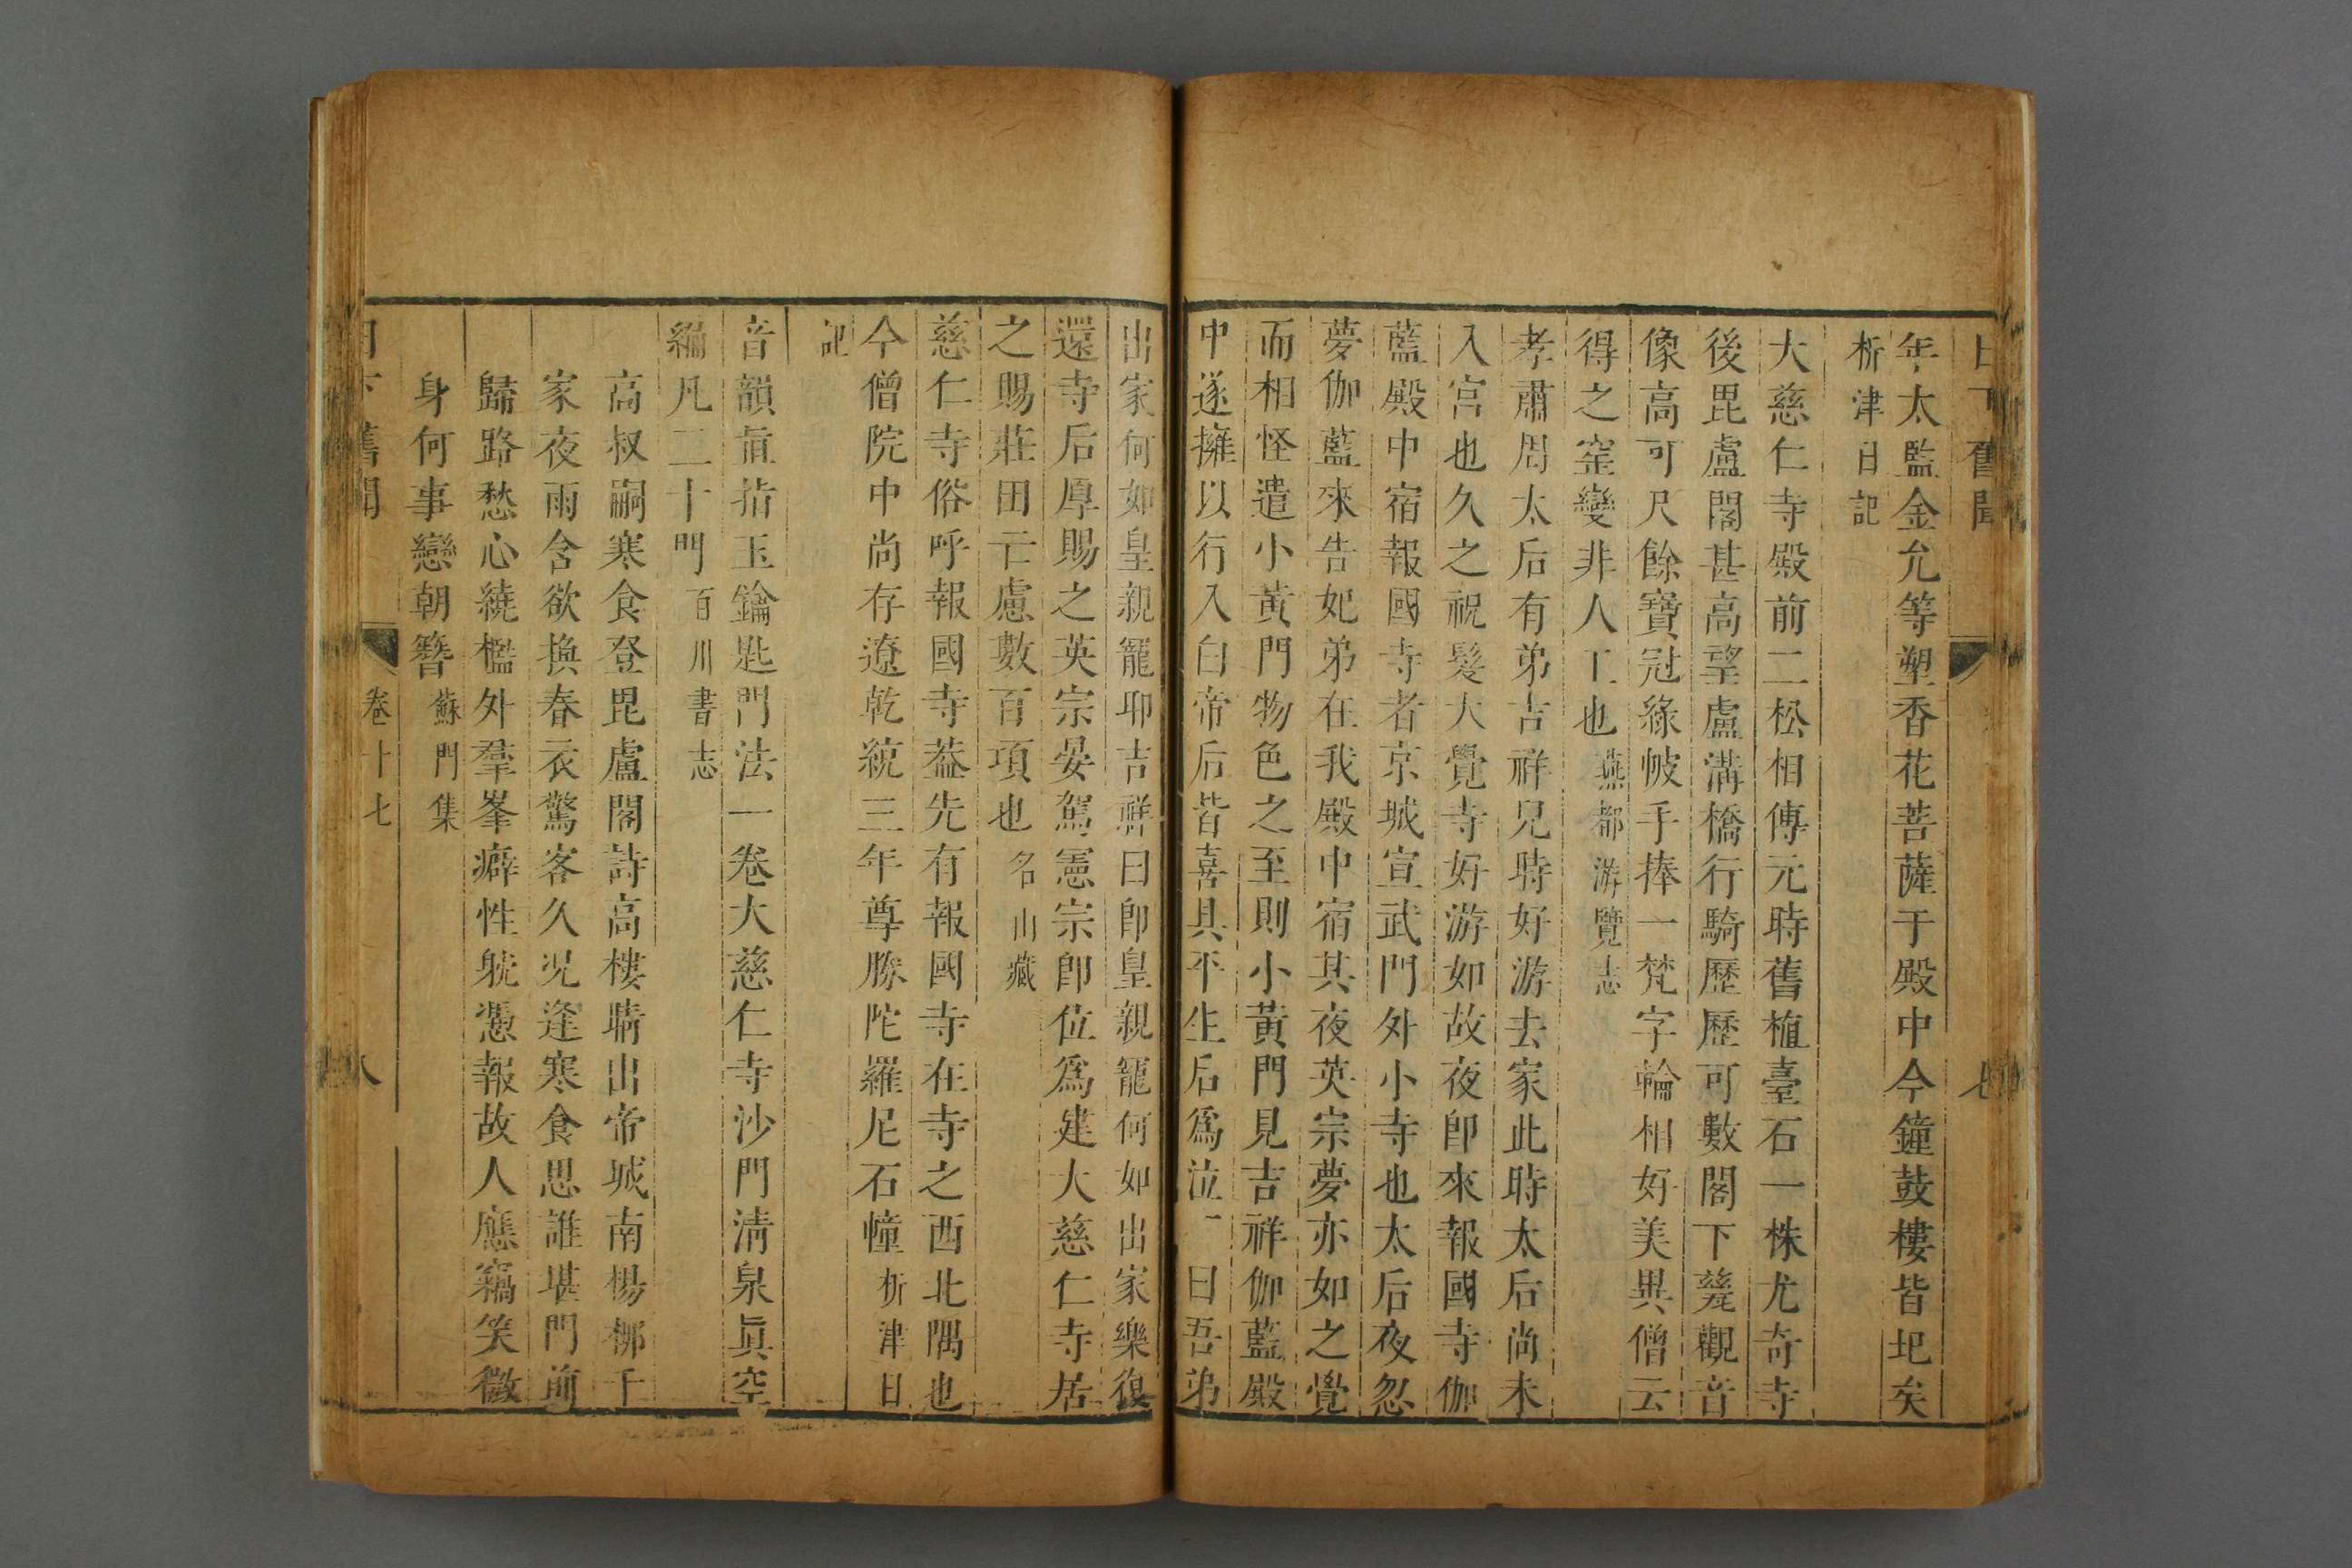 日下舊聞 七
年太監金允等塑香花菩薩于殿中今鐘鼓樓皆圮矣
析津日記
大慈仁寺殿前二松相傳元時舊植臺石一株尤奇寺
後毘盧閣甚高望盧溝橋行騎歷歷可數閣下甃觀音
像高可尺餘寶冠綠帔手捧一梵字輪相好美異僧云
得之窑變非人工也燕都游覽志
孝肅周太后有弟吉祥兒時好游去家此時太后尚未
入宮也久之祝髮大覺寺好游如故夜卽來報國寺伽
藍殿中宿報國寺者京城宣武門外小寺也太后夜忽
夢伽藍來告妃弟在我殿中宿其夜英宗夢亦如之覺
而相怪遣小黃門物色之至則小黃門見吉祥伽藍殿
中遂擁以行入白帝后皆喜具平生后爲泣一曰吾弟
出家何如皇親寵耶吉祥曰卽皇親寵何如出家樂復
還寺后厚賜之英宗晏駕憲宗卽位爲建大慈仁寺居
之賜莊田亡慮數百項也名山藏
慈仁寺俗呼報國寺葢先有報國寺在寺之西北隅也
今僧院中尚存遼乾統三年尊勝陀羅尼石幢析津日
記
音韻直指玉鑰匙門法一卷大慈仁寺沙門淸泉眞空
編凡二十門百川書志
高叔嗣寒食登毘盧閣詩高樓晴出帝城南楊柳千
家夜雨含欲換春衣驚客久况逢寒食思誰堪門前
歸路愁心繞檻外羣峯癖性躭憑報故人應竊笑微
身何事戀朝簪蘇門集
日下舊聞 卷十七 八